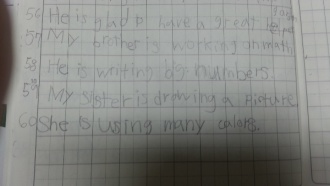 56 He is glad to have a great
57 My brother is working on math.
58 He is writing big numbers.
59 My sister is drawing a picture
60 She is using many colors.